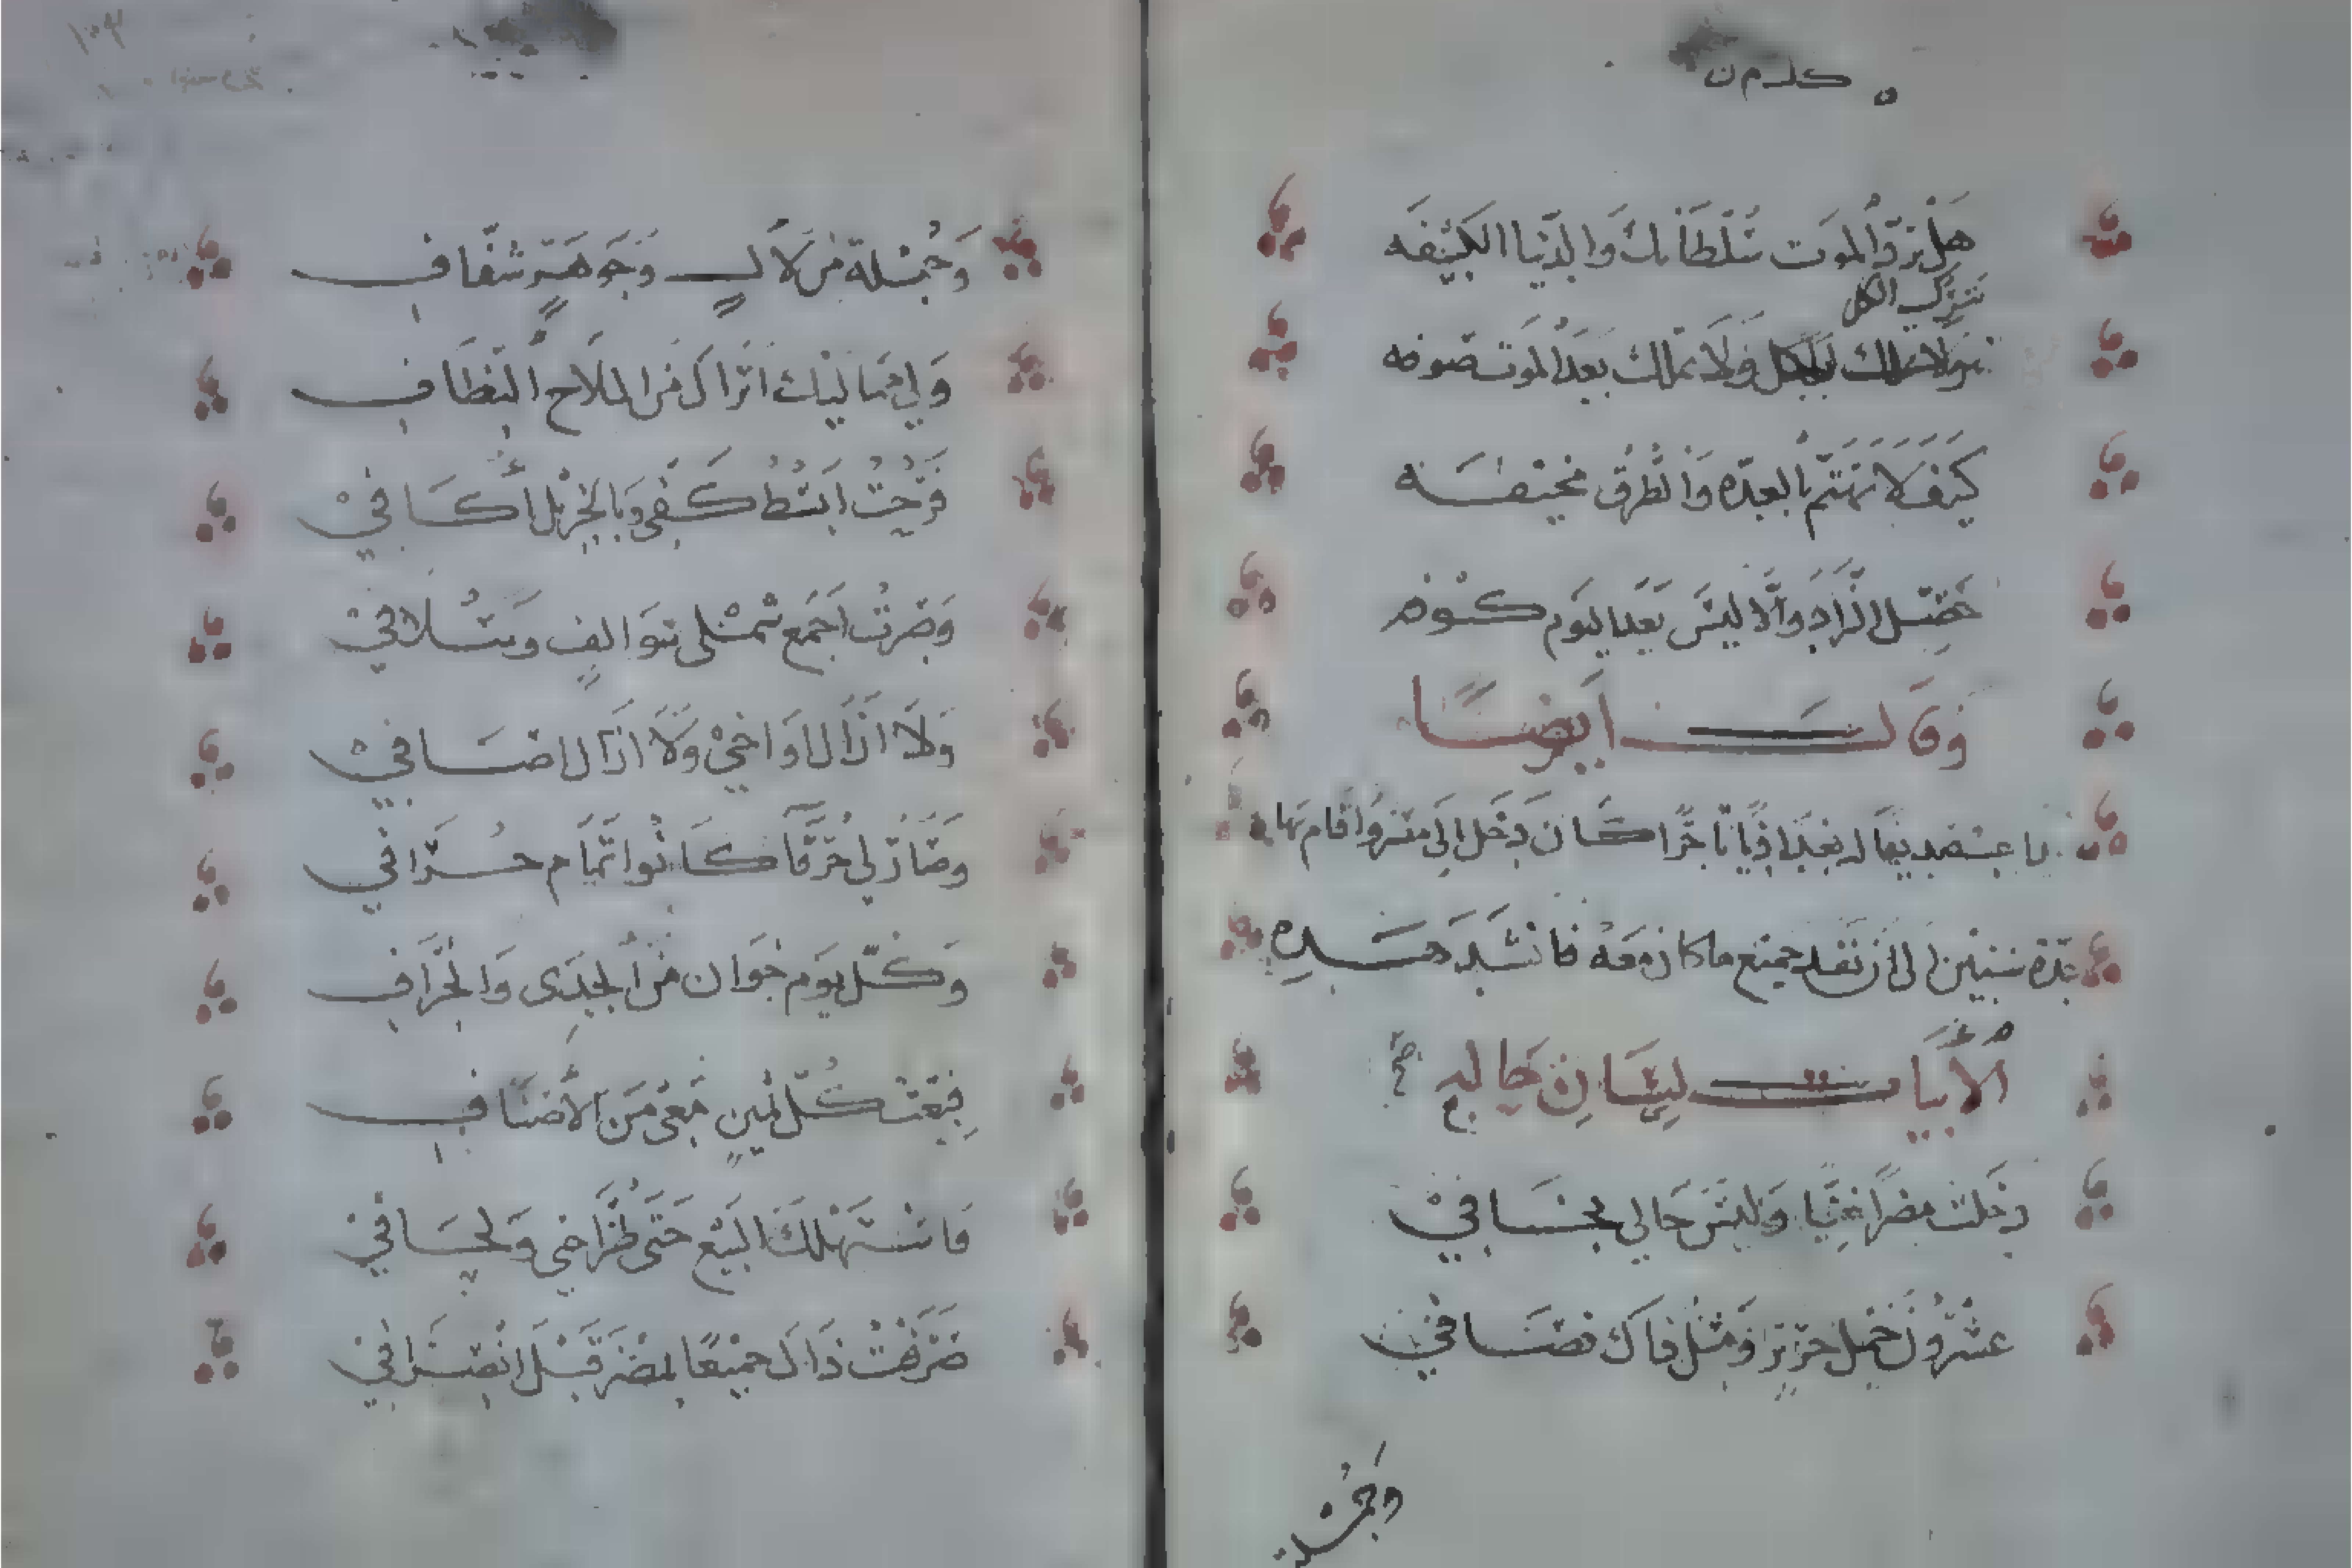 كلام ن
هَل تردّ الموت سَلْطَانك وَالدّنيا الكَثيفَه
تترك الكل
وَلا تملك بَعد الموت صوفه
كَيفَ لَا تَهتَمّ بالعِدّه وَالطُرق مخيفَه
حَصِّل الزاد وَالّا ليسَ بَعد اليَوم كوفه
وَقَالَ ايضًا
كَان دَخَل الى مصر وَاقام بها
عدّة سنين الى ان نفد جميع ما كان معَهُ فانشد هَذِهِ
الأَبيات لِسَانِ حَالِهِ صح
دَخلت مصرًا غنيًّا وَليسَ حَالي بخَافيْ
عشرُون حمل حَرِير وَمثل ذاك نصَافيْ
وَجُملة
وَجُمْلة من لآلٍ وَجَوهَرٍ شفّافِ
وَلي ممَاليك اترَاك من الملَاح النظَافِ
فرُحتُ ابسُط كَفّي وَبالجزيل أُكَافيْ
وَصرتُ اجمَع شملي بتوَالفٍ وَتُلافيْ
وَلَا ازَال اوَاخيْ وَلَا ازَال اصَافيْ
وصَارَ لي حُرَفَآءُ كَانُوا تمَام حُرَافي
وَكلّ يَوم خوَان منَ الجِدَى وَالخرَافِ
فبِعْتُ كُلّ ثمينٍ مَعيْ منَ الأصنَافِ
فَاسْتَهلَكَ البَيْع حَتى طُرَّاحَي وَلحَافيْ
صَرَفْتُ ذَاكَ جميْعًا بمصْرَ قَبْلَ انصِرَافيْ